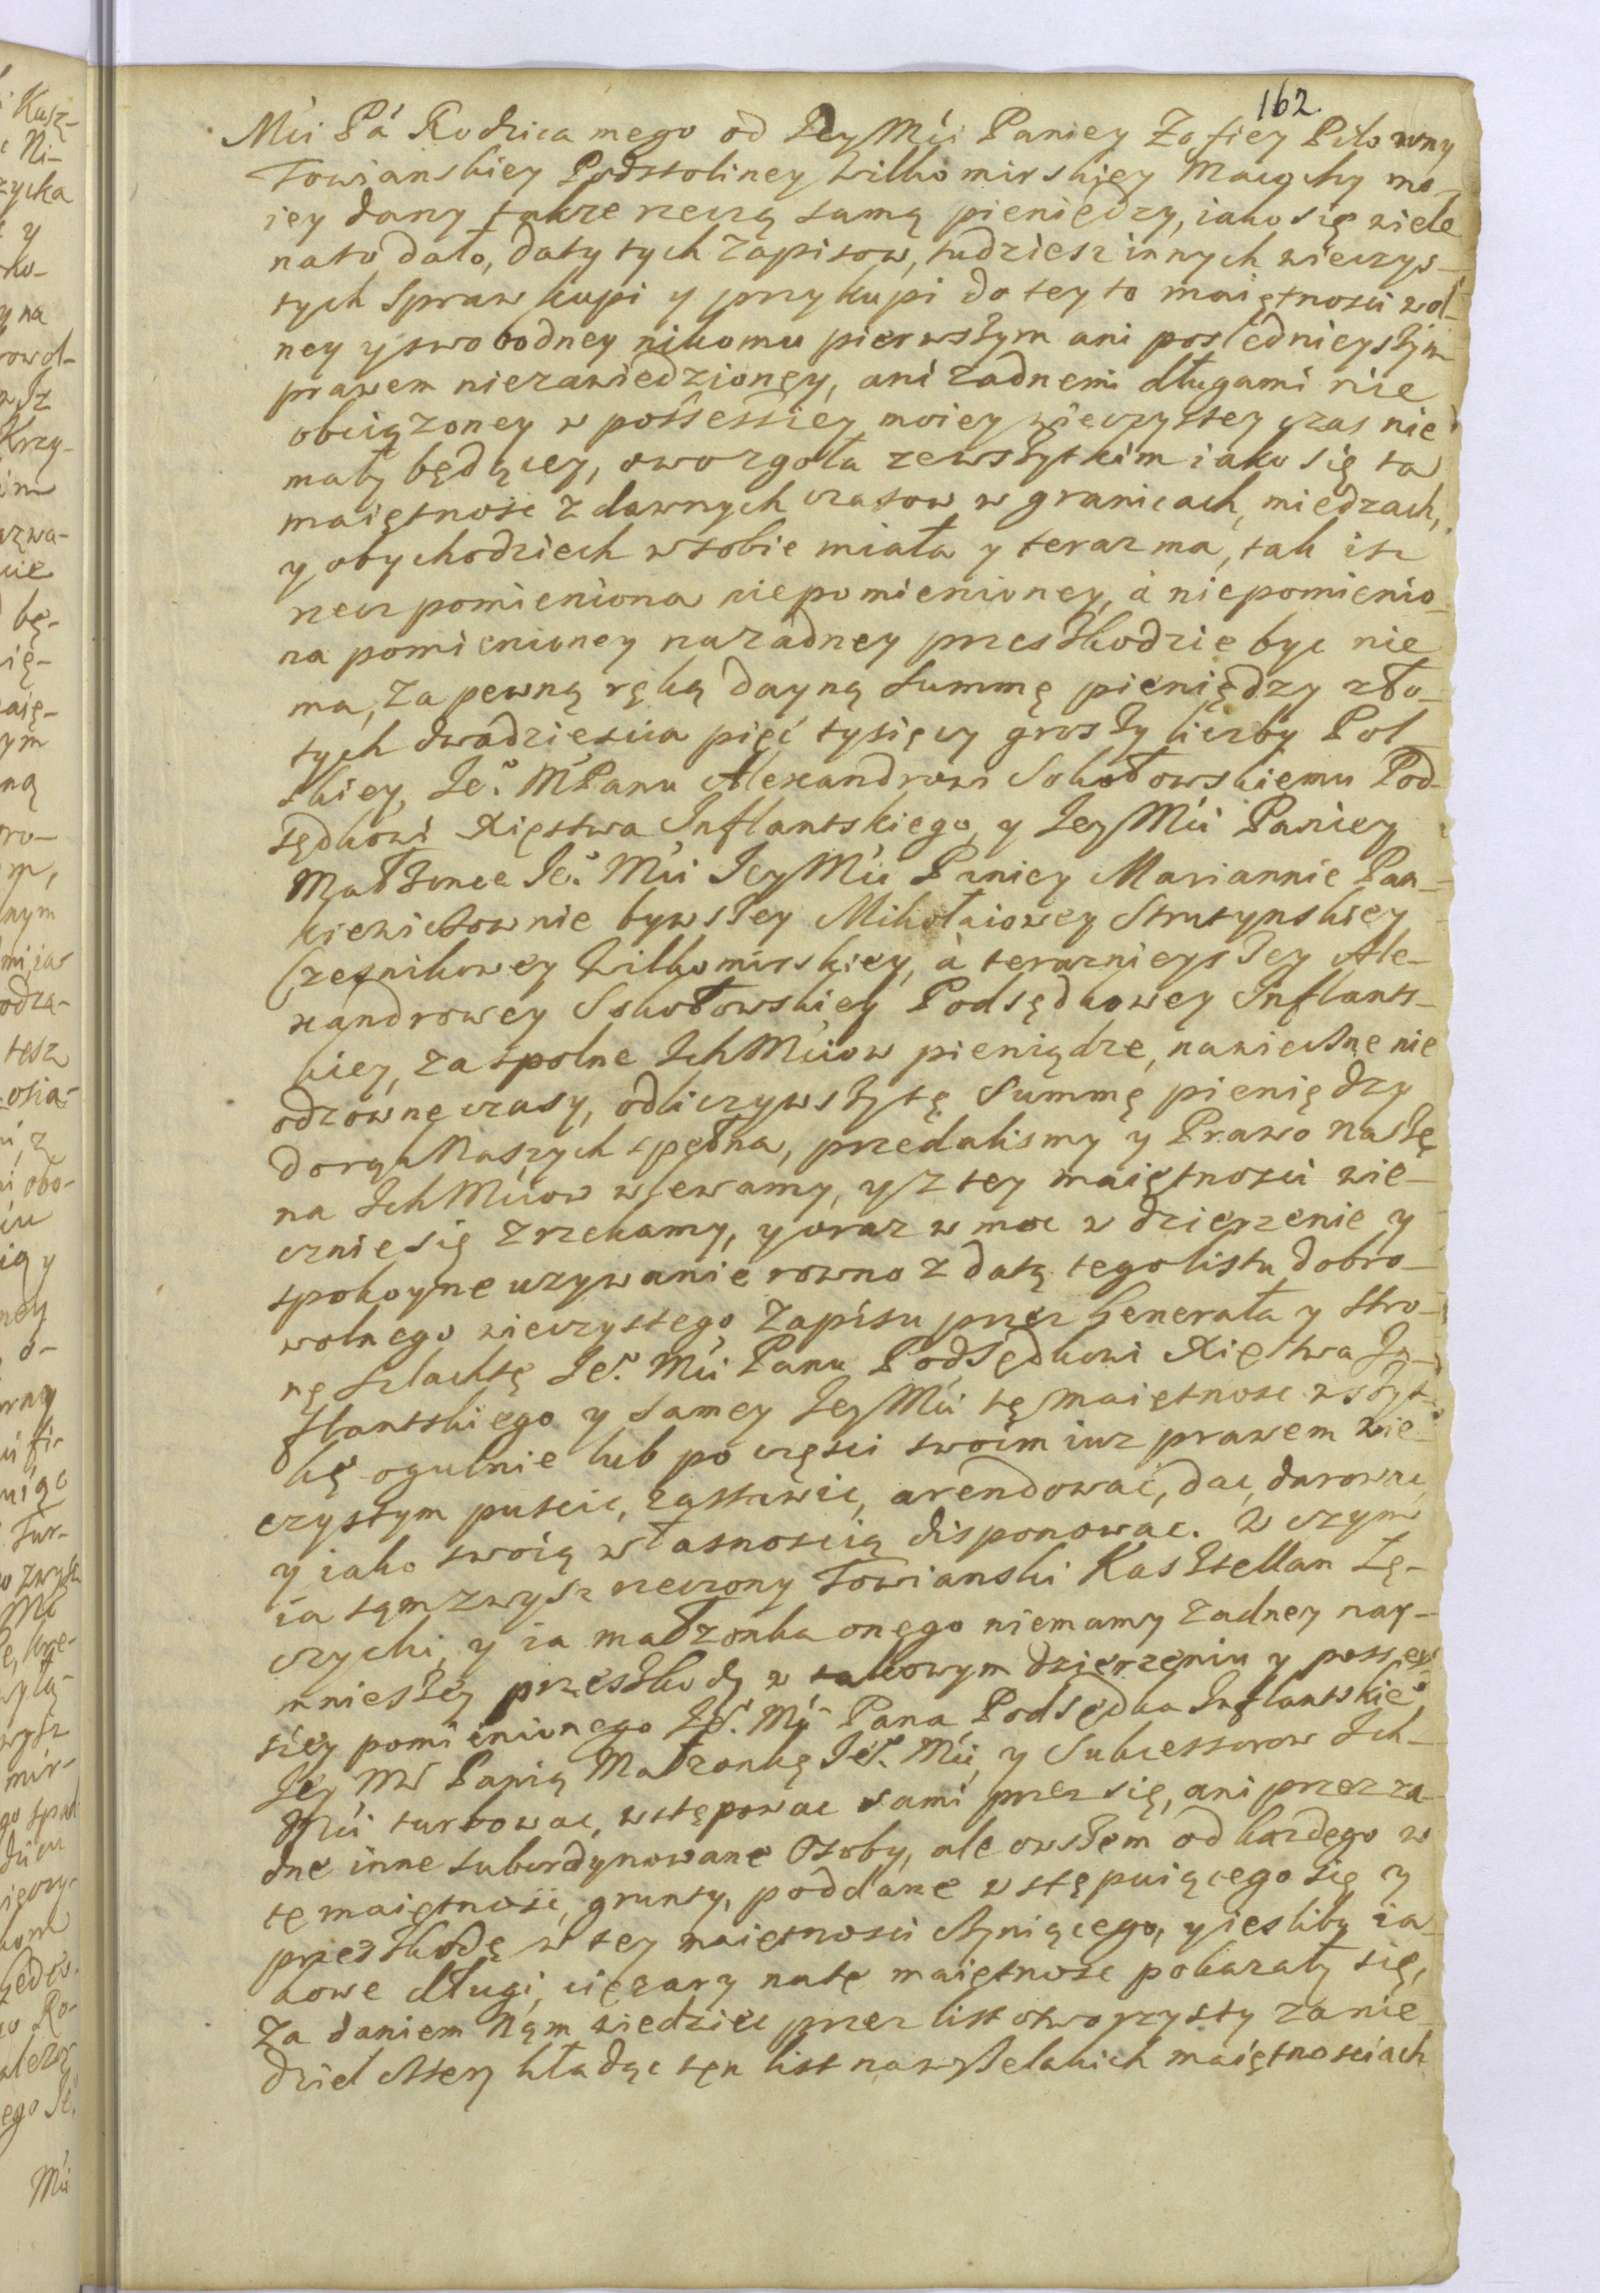 162
Mći Pá Rodzica mego od JeyMći Paniey Zofiey Piłowny
Towianskiey Podstoliney Wilkomirskiey Macochy mo-
iey dany takze rzeczą samą pieniędzy, iako się wiele
nato dało, daty tych zapisow, tudziesz innych wieczys-
tych Spraw kupi y przykupi do tey to maiętnosci wol-
ney y swobodney nikomu pierwszym ani poslednieyszym
prawem niezawiedzioney, ani zadnemi długami nie
obciązoney w possessiey moiey wieczystey czas nie
mały będącey, owozgoła zewszytkim iako się ta
maiętnosc z dawnych czasow w granicach, miedzach,
y obychodziech w sobie miała y teraz ma, tak isz
rzecz pomieniona niepomienioney, á niepomienio-
na pomienioney nazadney przeszkodzie byc nie
ma, za pewną ręką dayną summę pieniędzy zło-
tych dwadziescia pięć tysięcy groszy liczby Pol
skiey, Jeº MPanu Alexandrowi Sokołowskiemu Pod-
sędkowi Xięstwa Inflantskiego, y JeyMći Paniey
Małzonce Jeº Mći JeyMći Paniey Mariannie Pan-
kiewiczownie bywszey Mikołaiowey Strutynskiey
Czesnikowey Wilkomirskiey, á teraznieyszey Ale-
xandrowey Sokołowskiey Podsędkowey Inflants-
kiey, za spolne IchMćiow pieniądze, nawieczne nie
odzowne czasy, odliczywszy tę Summę pieniędzy
do rąk Naszych spełna, przedalismy y Prawo nasze
na IchMćiow wlewamy, y z tey maiętnosci wie-
cznie się zrzekamy, y oraz w moc w dzierzenie y
spokoyne uzywanie rowno z datą tego listu dobro-
wolnego wieczystego Zapisu przez Generała y stro-
nę szlachtę Jeº Mći Panu Podsędkowi Xięstwa In-
flantskiego y samey JeyMći tę maiętnosc wszyt-
kę ogulnie lub po częsci swoim iuz prawem wie-
czystym puscic, zastawic, arendować, dac, darowac
y iako swoią własnoscią disponowac. W czym
ia sam zwysz rzeczony Towianski Kasztellan Łę-
czycki, y ia małzonka onego niemamy zadney nay-
mnieszey przeszkody w takowym dzierzeniu y posses-
siey pomienionego Jeº Mći Pana Podsędka Inflantskieº
Jey Mć Panią Małzonkę Jeº Mći, y Sukcessorow Ich-
Mći turbowac, wstępowac sami przez się, ani przez za-
dne inne subordynowane Osoby, ale owszem od kazdego w
tę maiętność, grunty, poddane wstępuiącego się y
przeszkodę w tey maiętnosci czyniącego, y iesliby ia-
kowe długi, ciężary natę maiętnosc pokazały się,
Za daniem Nam wiedziec przez list otworzysty zanie
dziel cztery kładąc ten list na wszelakich maiętnosciach